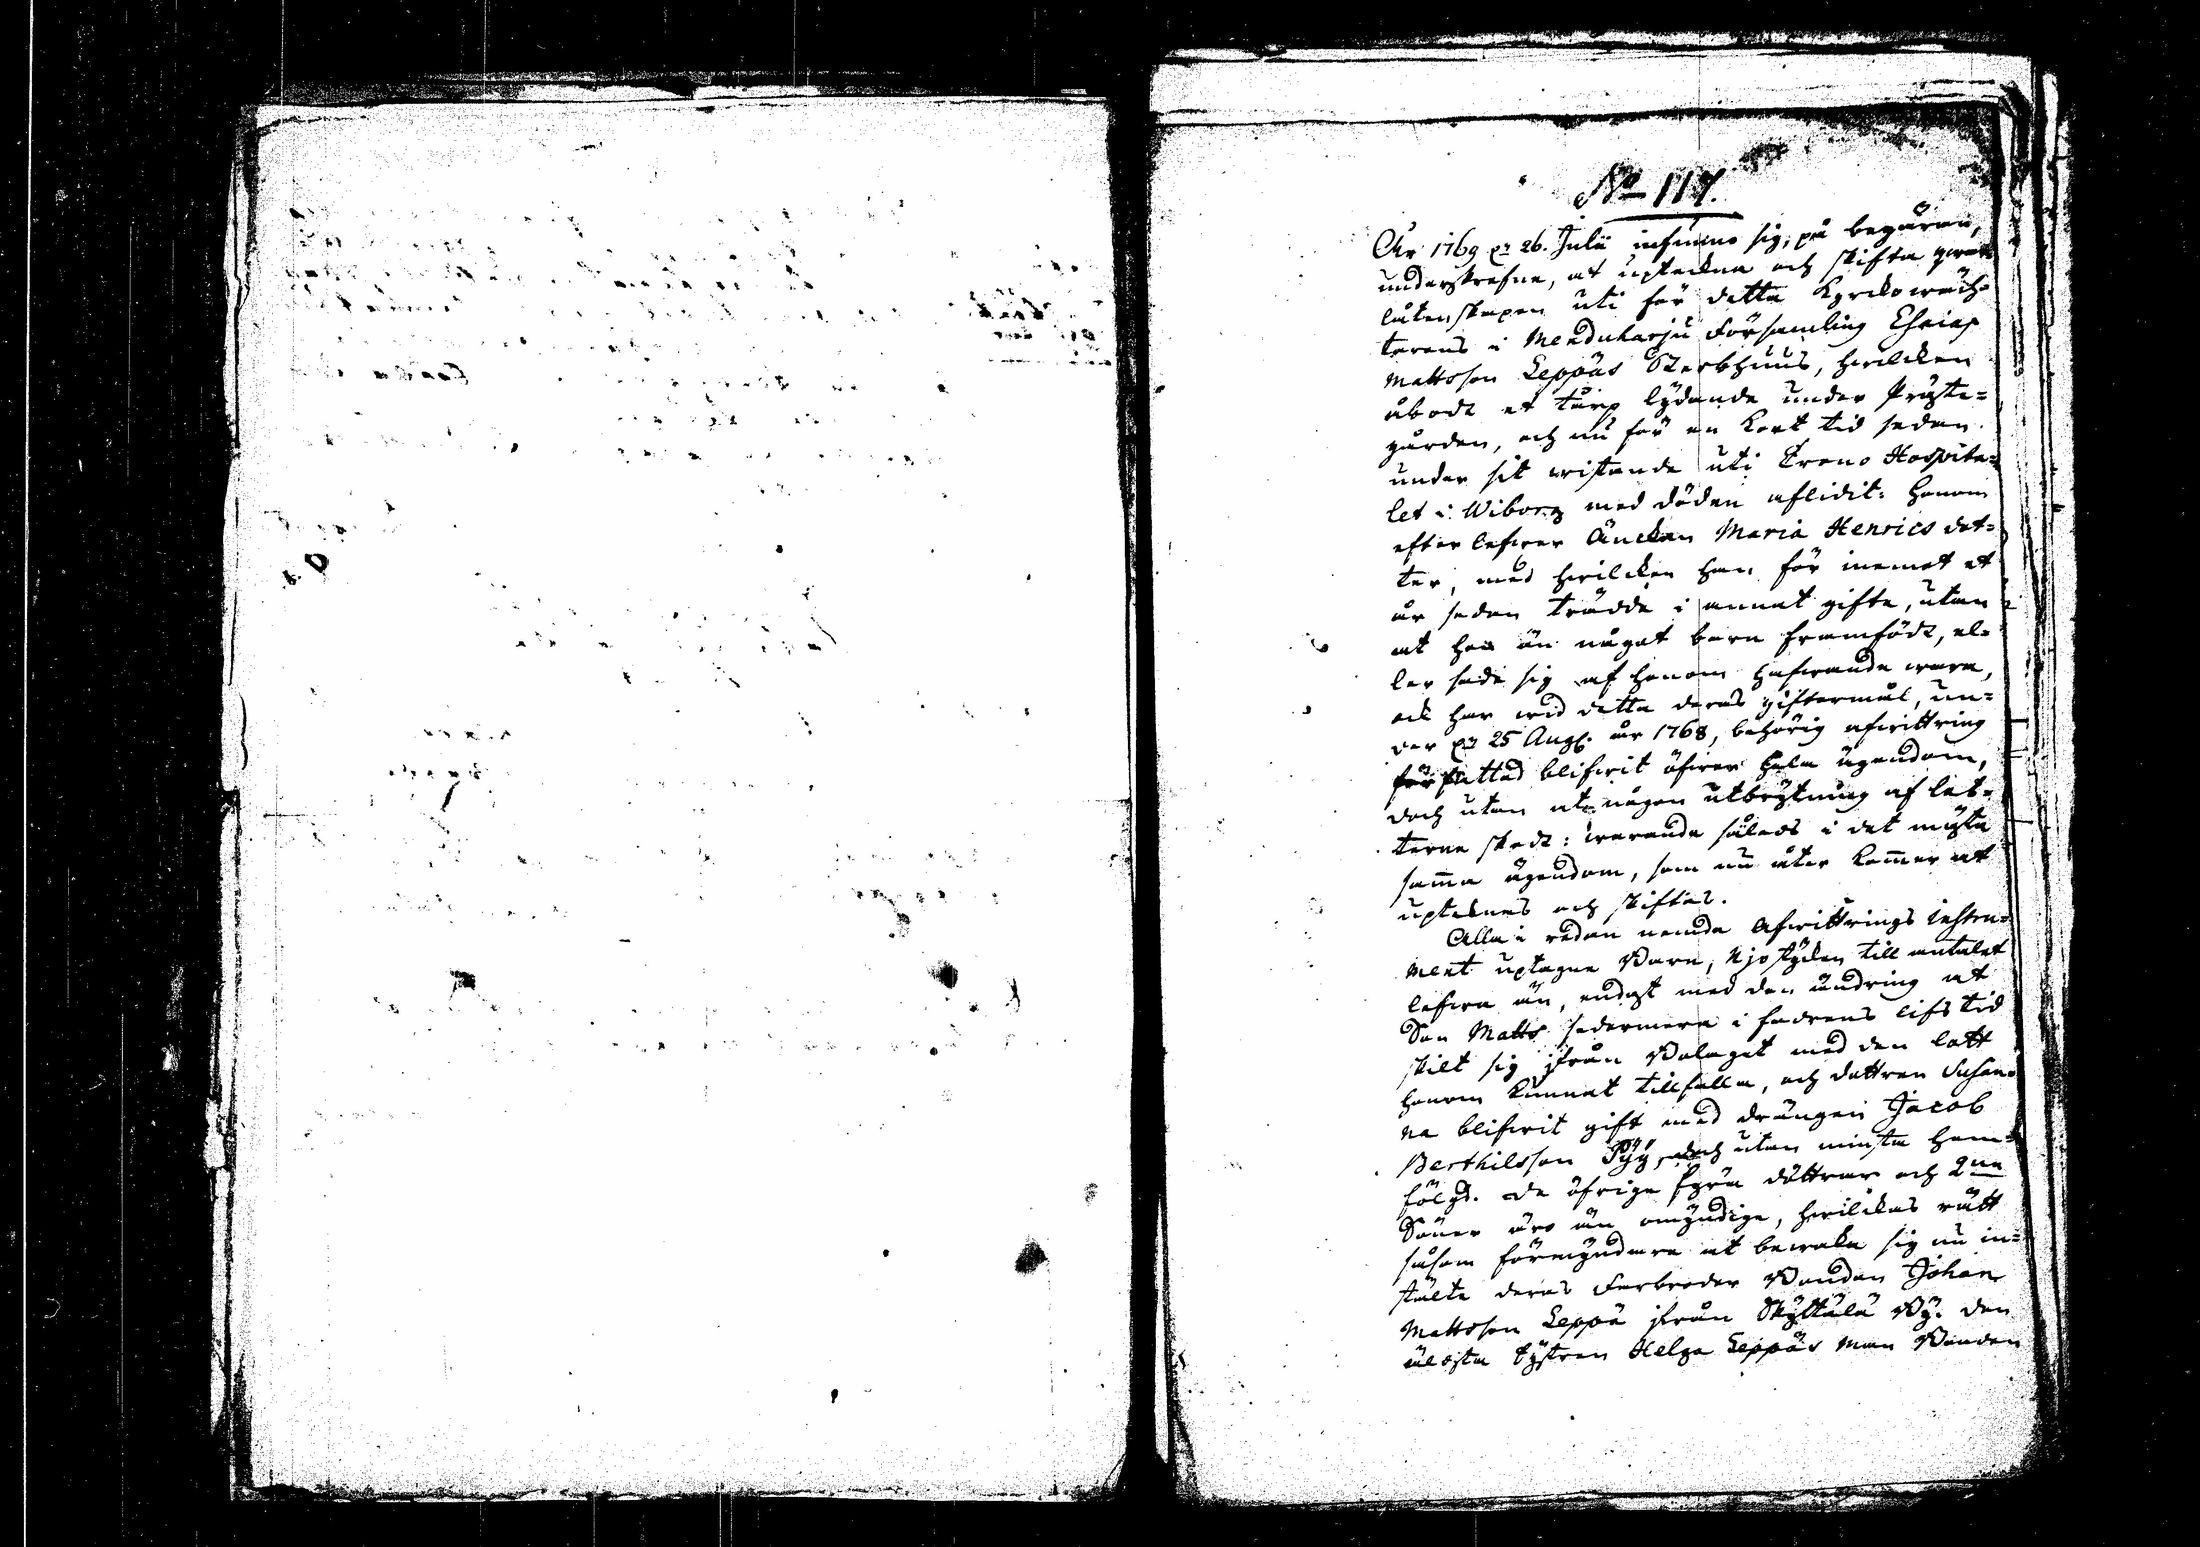 No 117.
Åhr 1769 d. 26. Julii infunno sig, på begäran,
underskrefne, at upteckna och skifta qwar-
låtenskapen uti för detta Kyrkowäch-
terens i Menduharju Församling Esaias
Mattsson Leppäs Sterbhuus, hwilcken
åbodt et torp lydande under Präste-
gården, och nu för en kort tid sedan
under sit wistande uti Crono Hospita-
let i Wiborg med döden aflidit: honom
efterlefwer Änckan Maria Henrics dot-
ter, med hwilcken han för inemot et
år sedan trädde i annat gifte, utan
at hon än något barn framfödt, el-
ler sade sig af honom hafwande wara,
ock har wid detta deras giftermål, un-
der d. 25 Aug. år 1768, behörig afwittring
författad blifwit öfwer hela ägendom,
doch utan at någon utbrytning af lot-
terne skedt: warande således i det mästa
samma ägendom, som nu åter kommer at
upteknas och skiftas.
Alla i redan nemda Afwittrings instru-
ment uptagne Barn, Njo stycken till antalet
lefwa än, endast med den ändring at
Son Matts sedermera i fadrens lifs tid
skilt sig ifrån Bolaget med den lott
honom kunnat tillfalla, och dottren Susan-
na blifwit gift med drängen Jacob
Berthilsson Pyy, doch utan minsta hem-
följd. de öfrige fyra döttrar och 2ne
Söner äro än omyndige, hwilckas rätt
såsom förmyndare at bewaka sig nu in-
stälte deras Farbroder Bonden Johan
Mattsson Leppä ifrån Skyttälä By. den
äldsta Systren Helga Leppäs man Bonden